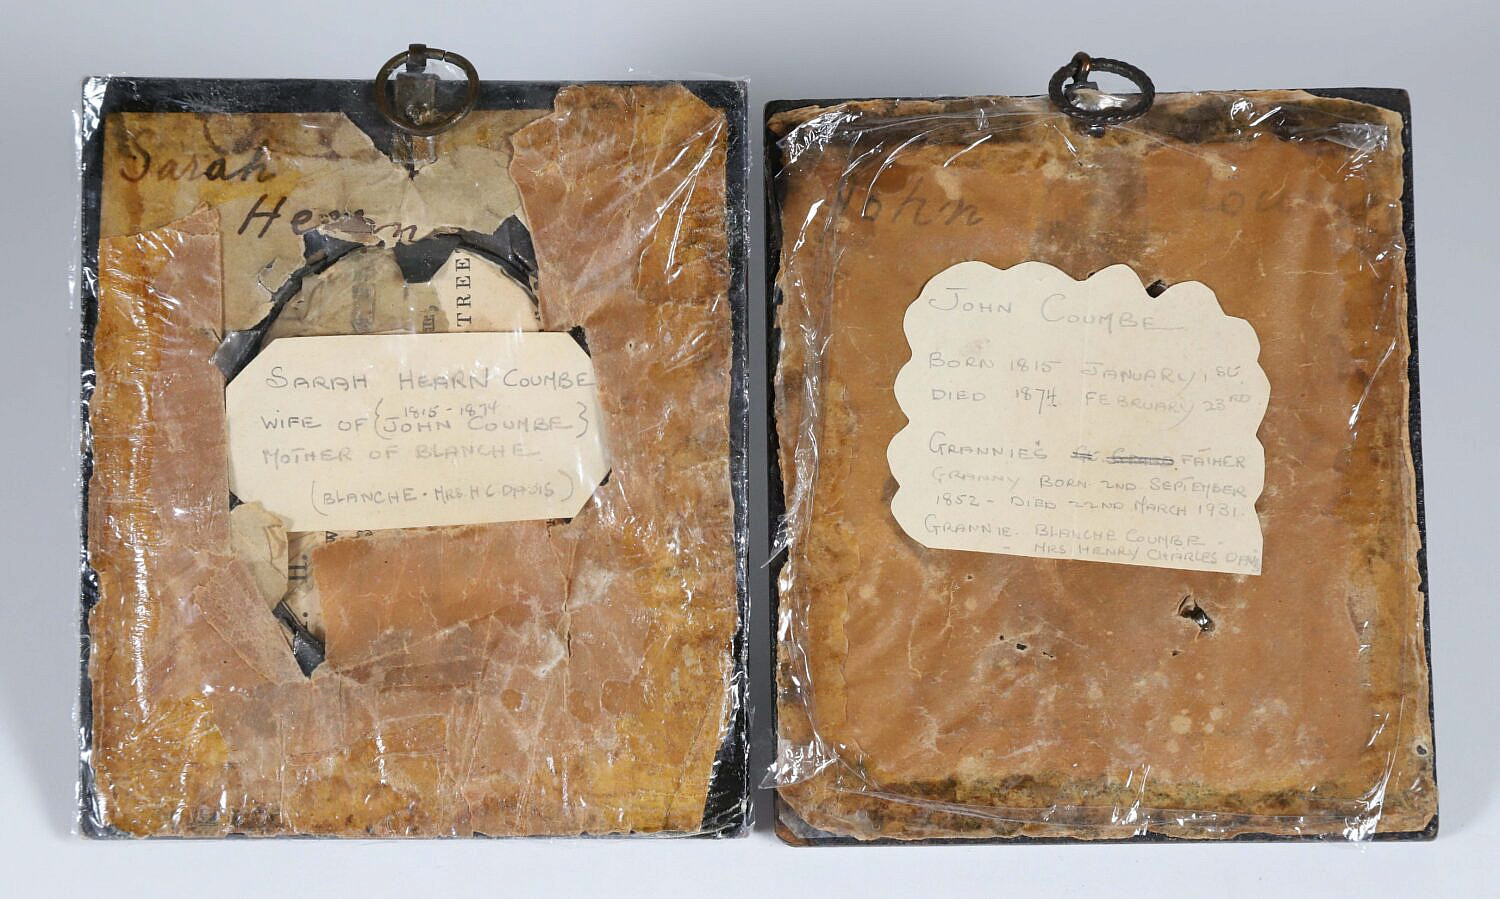 Sarah
Hearn
TREE
H.
SARAH HEARN COUMBE
1815 - 1874
WIFE OF {JOHN COUMBE}
MOTHER OF BLANCHE
(BLANCHE. MRS. H C DAVIS)
John Coum
JOHN COUMBE
BORN 1815 JANUARY 1ST.
DIED 1874. FEBRUARY 23RD
GRANNIE'S FATHER
GRANNY BORN 2ND SEPTEMBER
1852 - DIED 22ND MARCH 1931.
GRANNIE. BLANCHE COUMBE -
- MRS HENRY CHARLES DAVIS